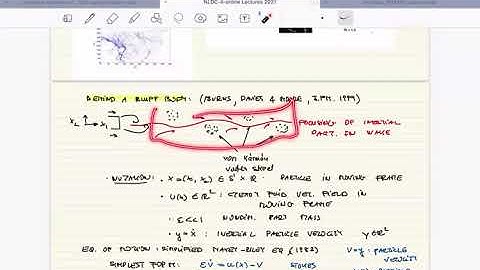 NLDC-II-online Lectures 2021
BEHIND A BLUFF BODY: (BURNS, DAVIS & MOORE, JFM. 1999)
x₂ x₁
FOCUSING OF INERTIAL
PART. IN WAKE
von Kármán
vortex street
• NOTATION: • X = (x₁, x₂) ∈ S¹ × ℝ PARTICLE IN MOVING FRAME
• u(x) ∈ ℝ² : STEADY FLUID VEL. FIELD IN
MOVING FRAME
• ε << 1 NONDIM. PART MASS
• y = ẋ : INERTIAL PARTICLE VELOCITY y ∈ ℝ²
EQ. OF MOTION: SIMPLIFIED MAXEY-RILEY EQ.
V=y: PARTICLE
VELOCITY
SIMPLEST FORM: εV̇ = u(x) - V STOKES